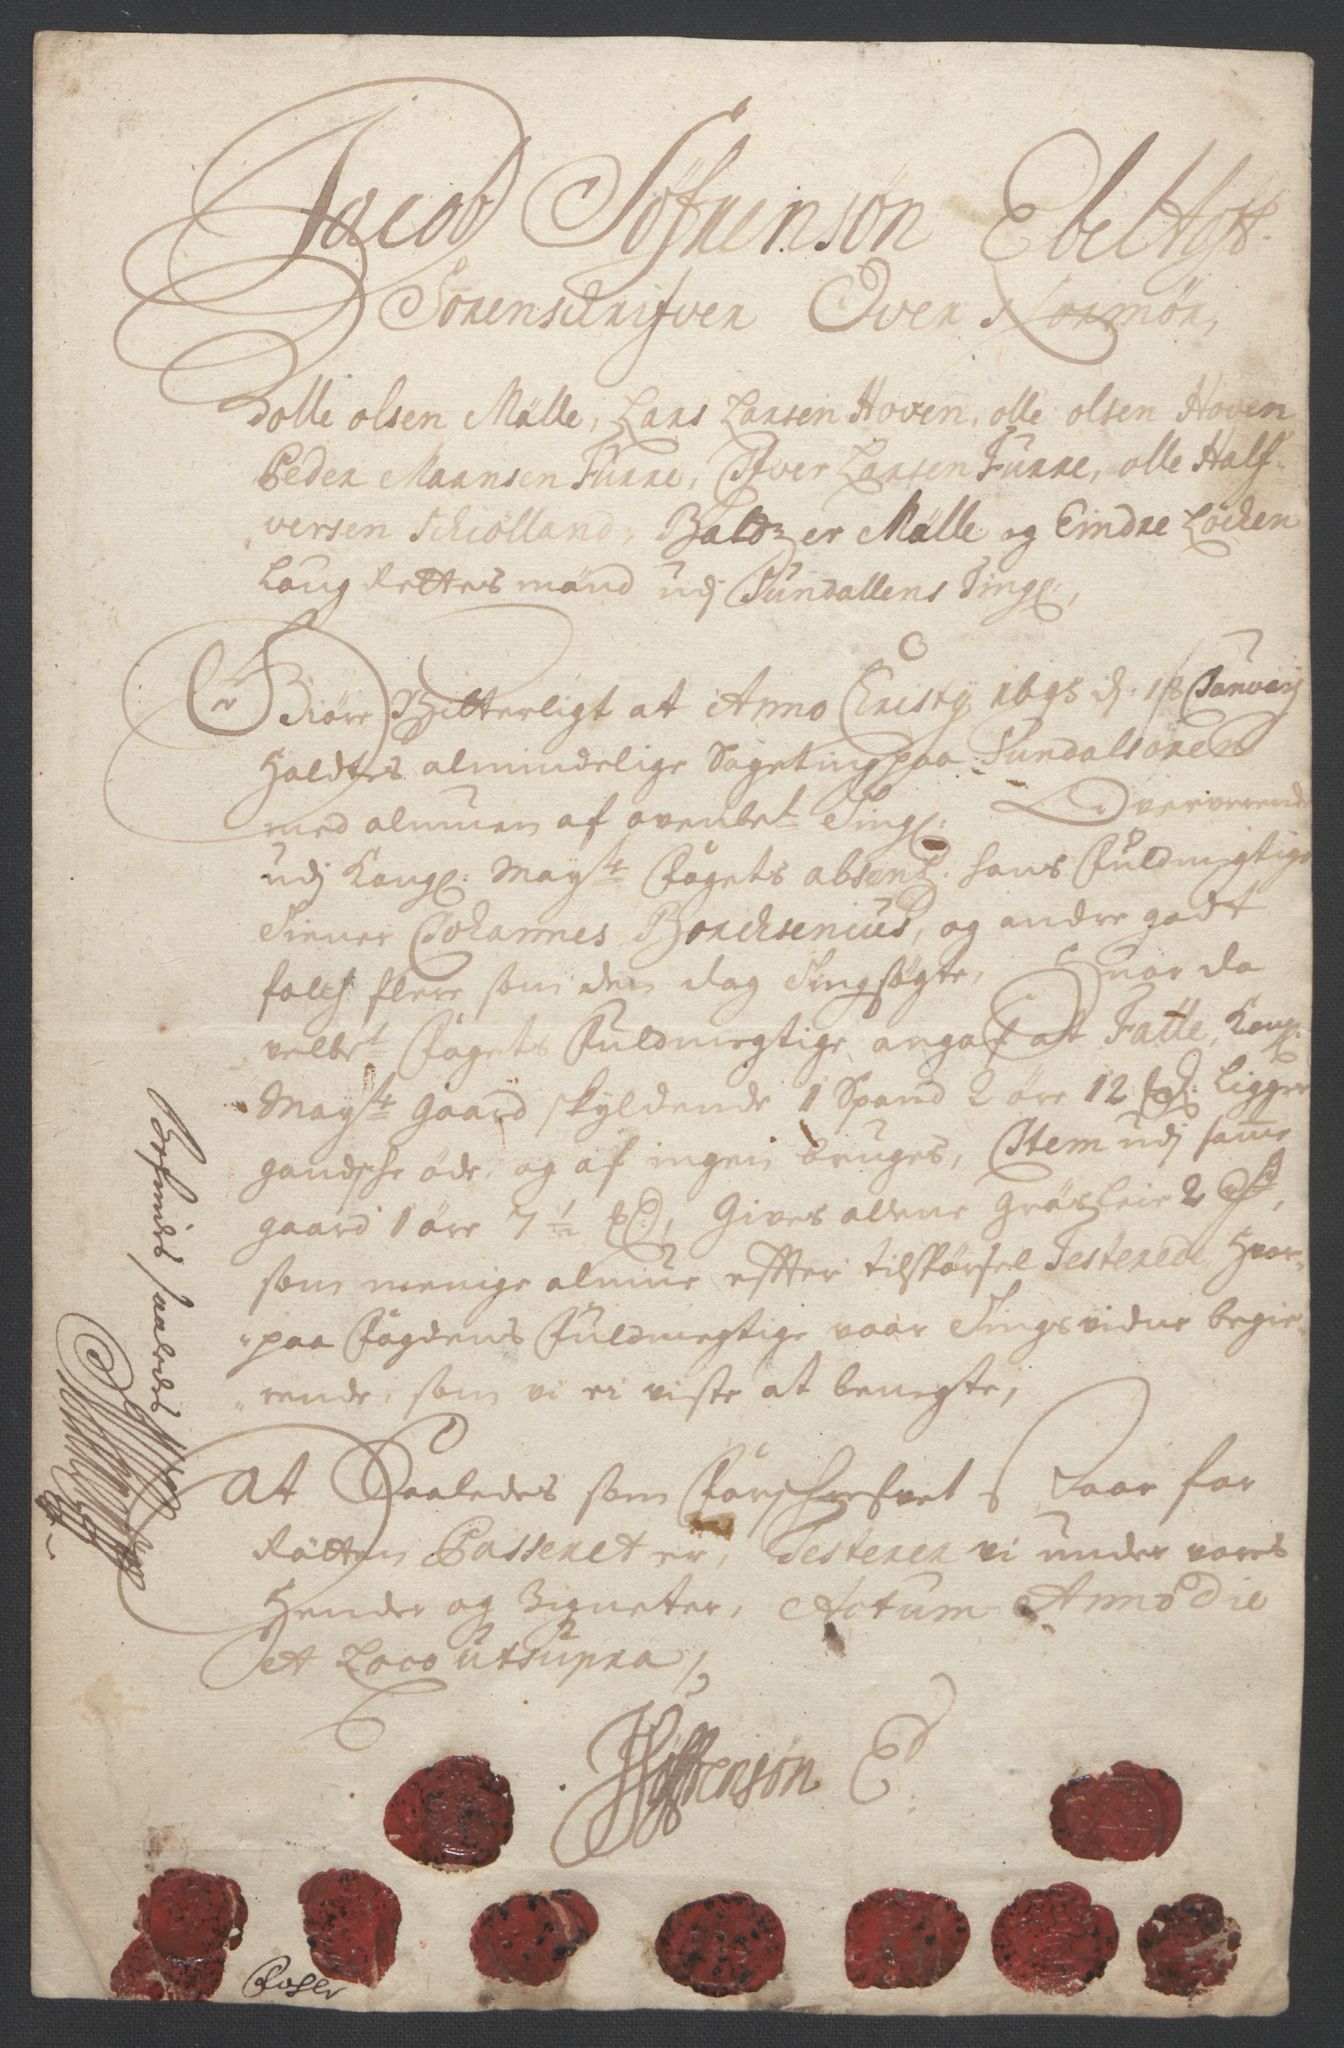 Jacob Söfrensøn Ebeltoft
Sorenschrifver Over Normør,
Tolle olsen Mälle, Lars Larsen Hoven, olle olsen Hoven
Peder Monnsen Furre, Ifver Larsen Furre, olle Half-
versen Schiölland, Baldzer Mälle og Eindre Löchen
Laug Rettes mänd udj Sundallens Tingl:,
Giöre Vitterligt at Anno Christy 1695 d: 18 Januarij
Holdtes almindelige Sageting paa Sundalsören
med almuen af ovenbet Tingl: Oververende
udj Kongl: Mayts Fogets absentz: hans Fuldmegtige
Tiener Johannes Borchsenius, og andre godt
folch flere som den dag Tingsøgte, Hvor da
velbet Fogets Fuldmegtige angaf at Fatle, Kongl:
Mayts Gaard skyldende 1 Spand 2 öre 12 Ligger
gandsche öde, og af ingen bruges, Item udj samme
gaard 1 öre 7 ½ Gives allene Gräsleie 2
som menige almue effter tilspörsel Testerede Hvor-
paa Fogdens Fuldmegtige voar Tingsvidne begie-
rende, som vi ei viste at benegte,
At Saaledes som Forschrefvet Voar for
Rätten Passeret er, Testerer vi under vores
Hender og Zigneter, Actum Anno Die
et Loco utsupra,
JSöffrensøn E
Befindes saaledes